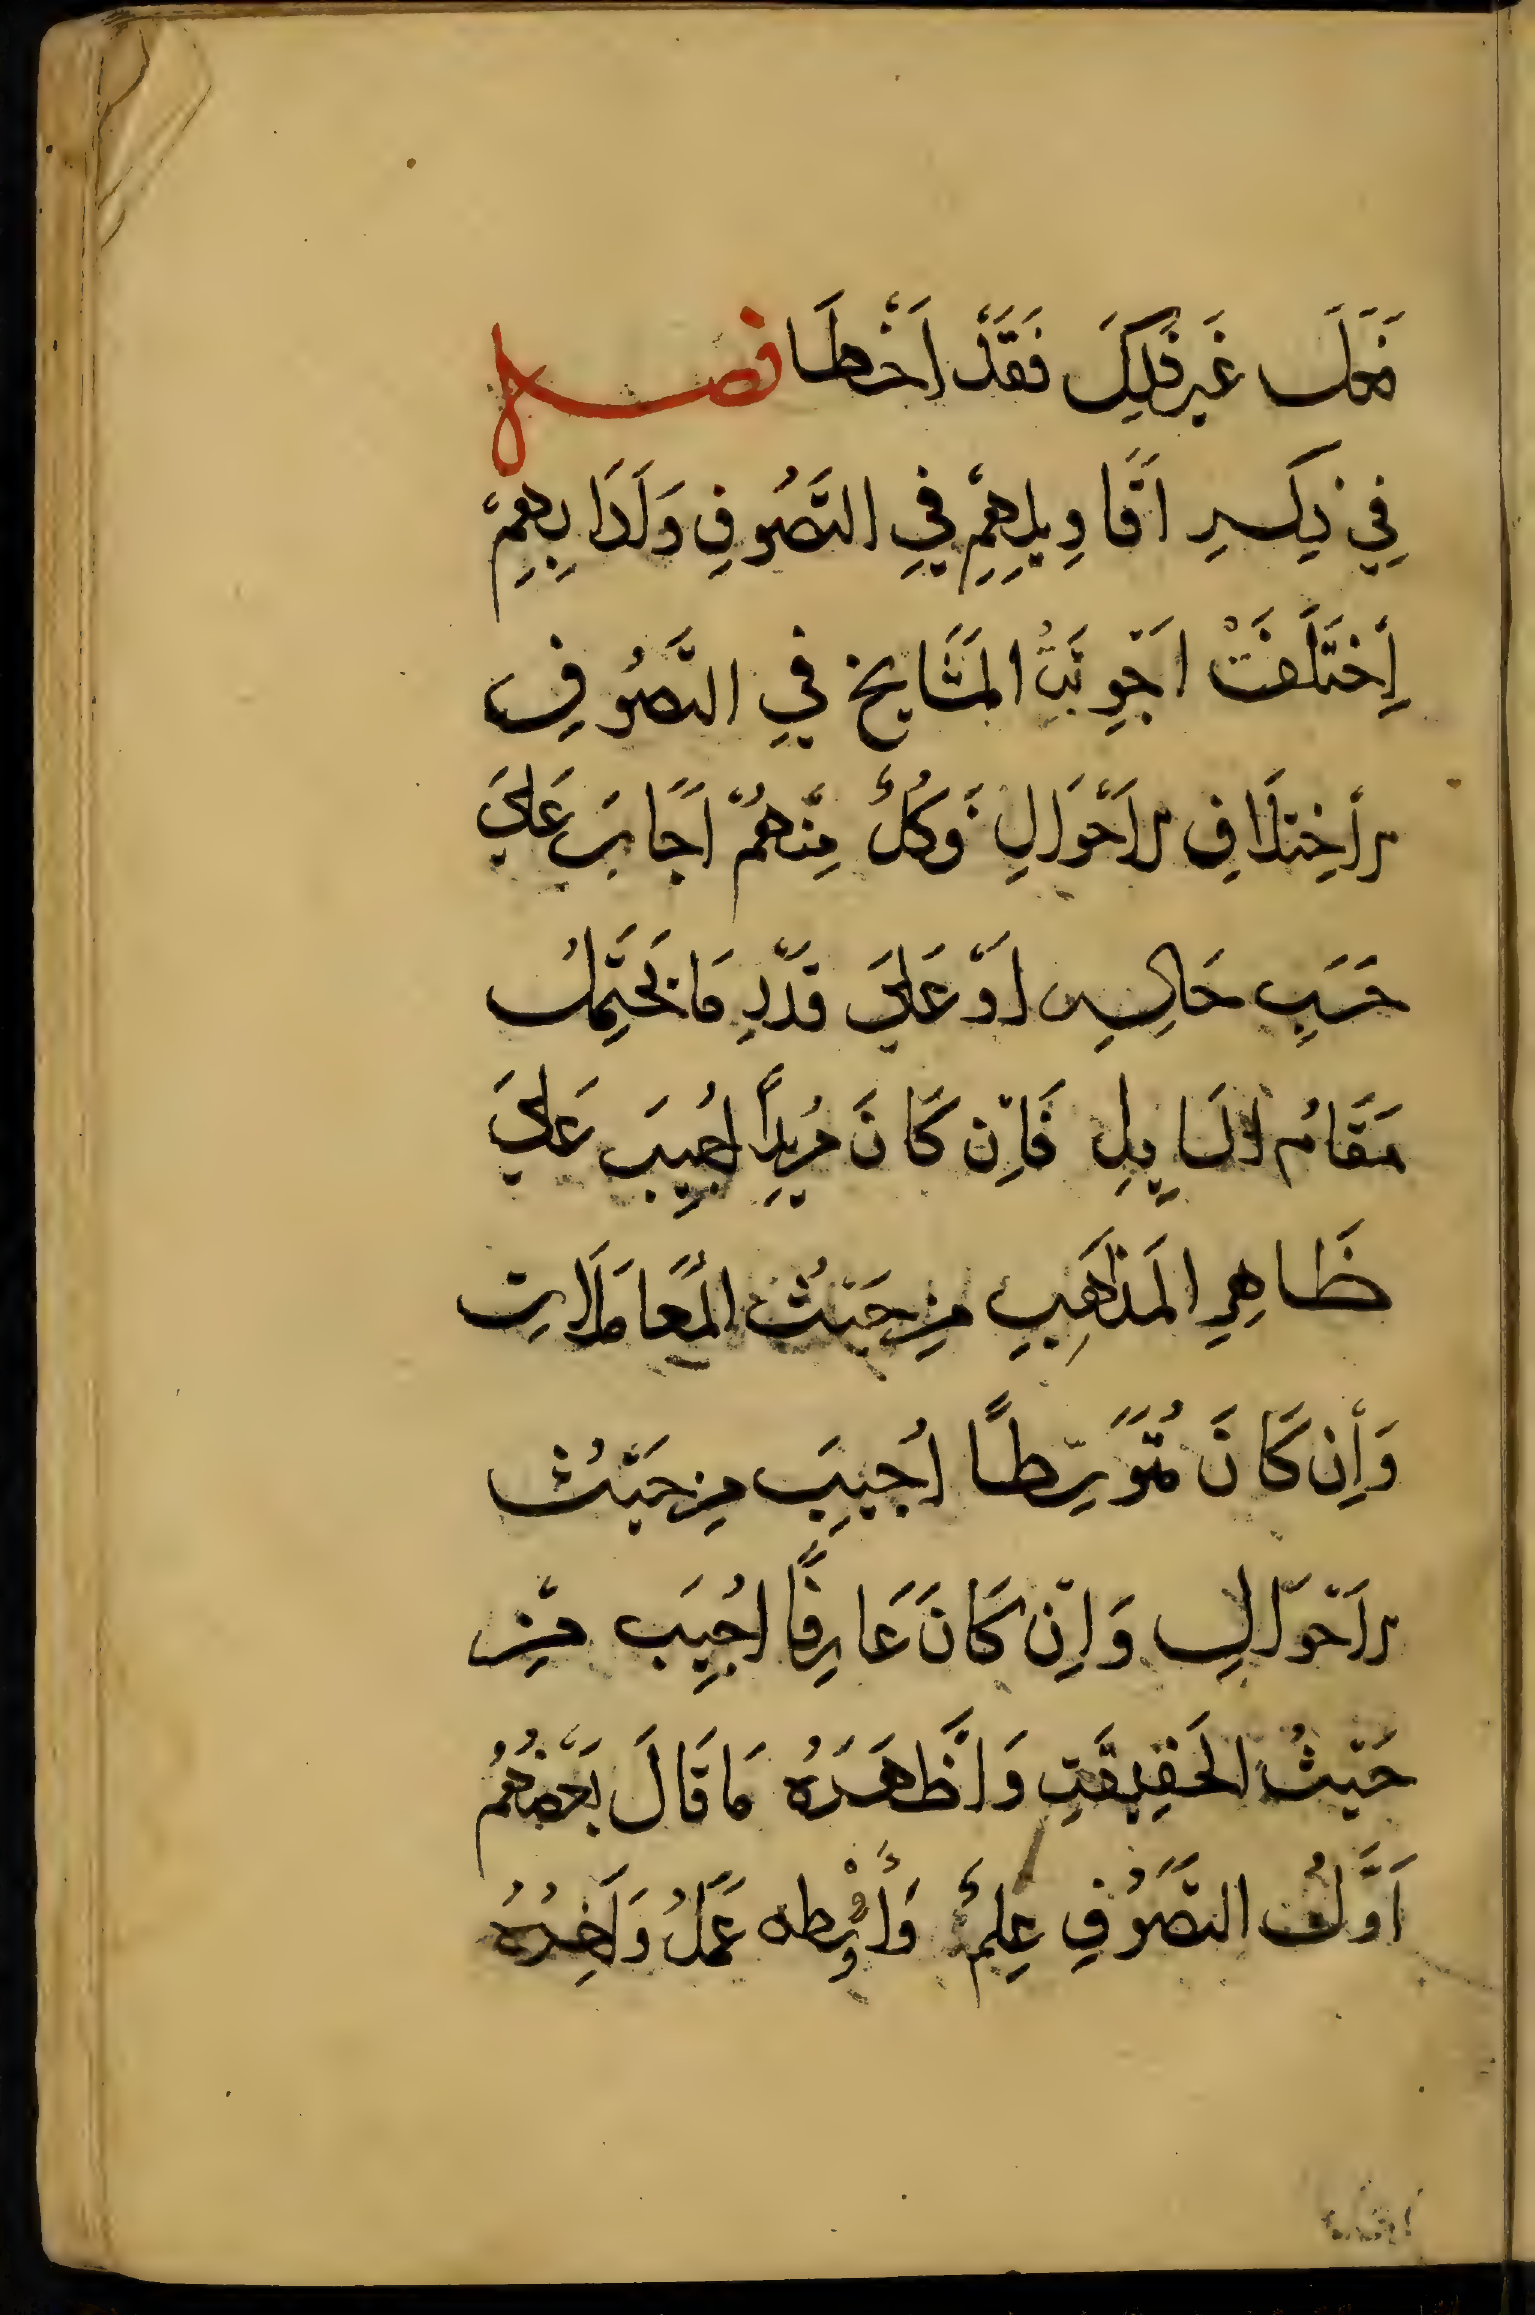 فَعَلَ غَيرَ ذَلِكَ فَقَدْ اَخْطَا فصل
فِي ذِكْرِ اَقَاوِيلِهِمْ فِي التَّصَوُّفِ وَاَدَابِهِمْ
اِخْتَلَفَتْ اَجْوِبَتُ المَشَايخِ فِي التَّصَوُّفِ
لِاَخْتِلَافِ الاَحْوَالِ وَكُلٌّ مِنْهُمْ اَجَابَ عَلَيَ
حَسَبِ حَالِهِ اَوْ عَلَيَ قَدْرِ مَا يَحْتَمِلُ
مَقَامُ السَايِلِ فَاِن كَانَ مُرِيداً اُجِيبَ عَلَيَ
ظَاهِرِ المَذْهَبِ مِن حَيْثُ المُعَامَلَاتِ
وَاِن كَانَ مُتَوَسِّطًا اُجِيبَ مِن حَيْثُ
الاَحْوَالِ وَاِن كَانَ عَارِفًا اُجِيبَ مِنْ
حَيْثُ الحَقِيقَتِ وَاَظْهَرَهُ مَا قَالَ بَعْضُهُمْ
اَوَّلُ التَّصَوُّفِ عِلْمٌ وَأَوْسطه عَمَلٌ وَاَخِرُهُ